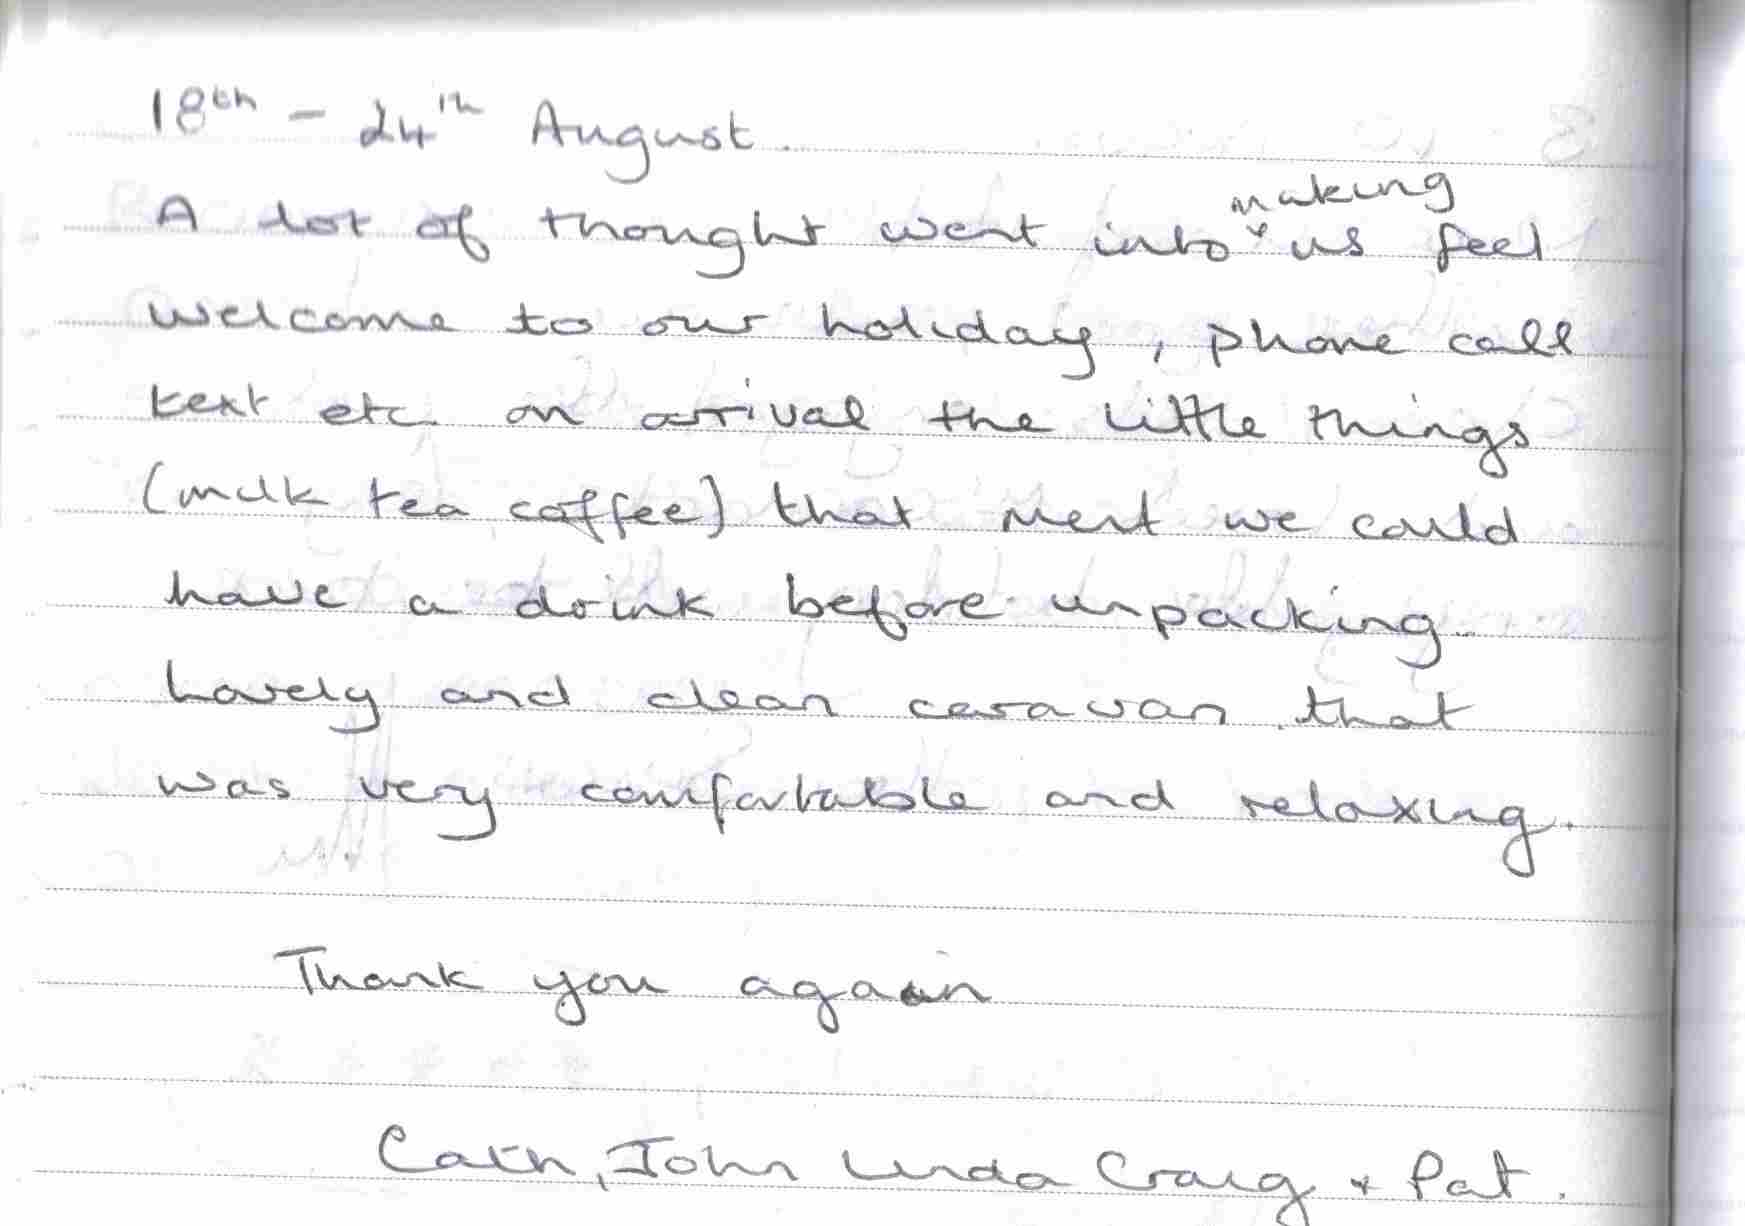 18th - 24th August.
A lot of thought went into making us feel
welcome to our holiday, phone call
text etc. on arrival the little things
(milk tea coffee) that ment we could
have a drink before unpacking.
Lovely and clean caravan that
was very comfortable and relaxing.
Thank you again
Cath, John Linda Craig + Pat.